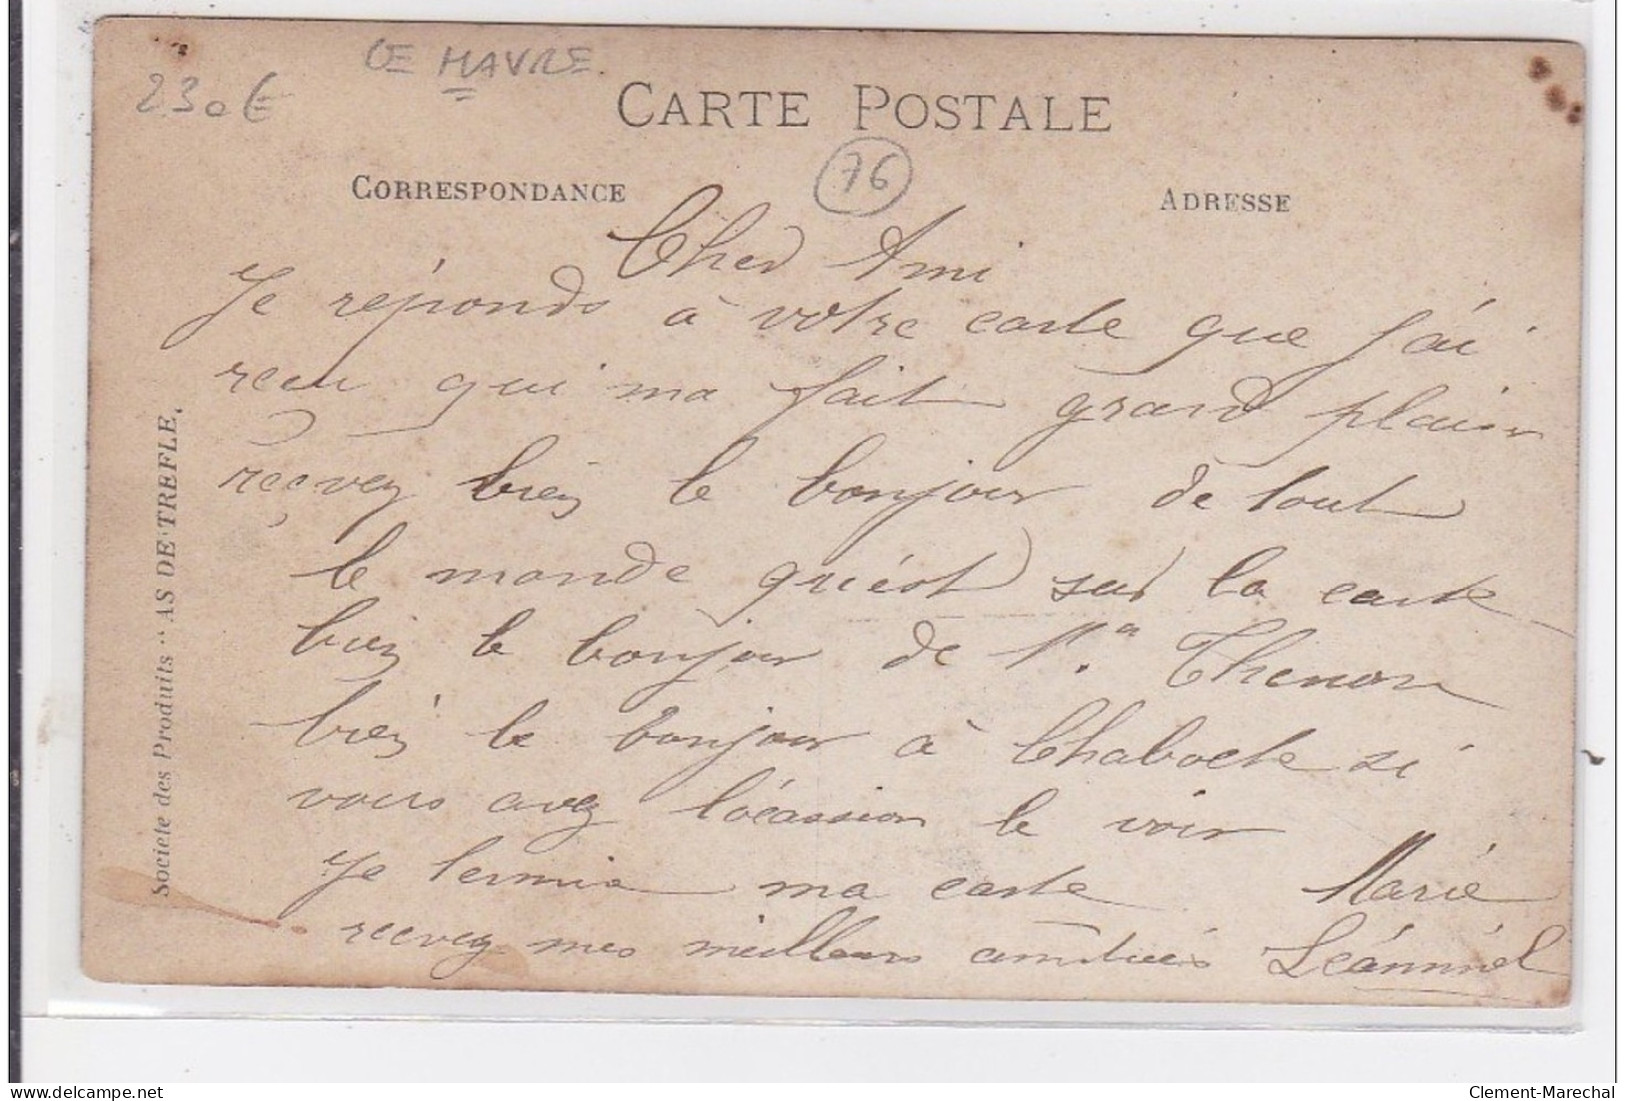 LE HAVRE
230€
CARTE POSTALE
76
CORRESPONDANCE
ADRESSE
Cher Ami
Je réponds à votre carte que j'ai
recu qui ma fait grand plaisir
reçevez bien le bonjour de tout
le monde qu'est sur la carte
bien le bonjour de Thenon
bien le bonjour à Chaboche si
vous avez l'ocassion le voir
Je termine ma carte Marie
recevez mes meilleurs amitiés
Societe des Produits "AS DE TREFLE.
delcampe.net
Clement-Marechal